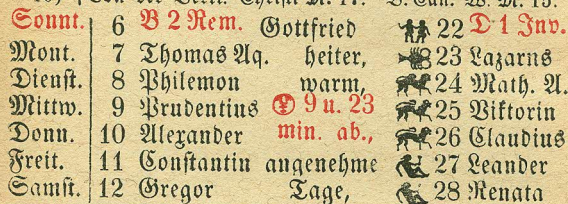 Sonnt. 6 B 2 Rem. Gottfried 22 D 1 Inv.
Mont. 7 Thomas Aq. heiter, 23 Lazarus
Dienst. 8 Philemon warm, 24 Math. A.
Mittw. 9 Prudentius 9 u. 23 25 Viktorin
Donn. 10 Alexander min. ab., 26 Claudius
Freit. 11 Constantin angenehme 27 Leander
Samst. 12 Gregor Tage, 28 Renata